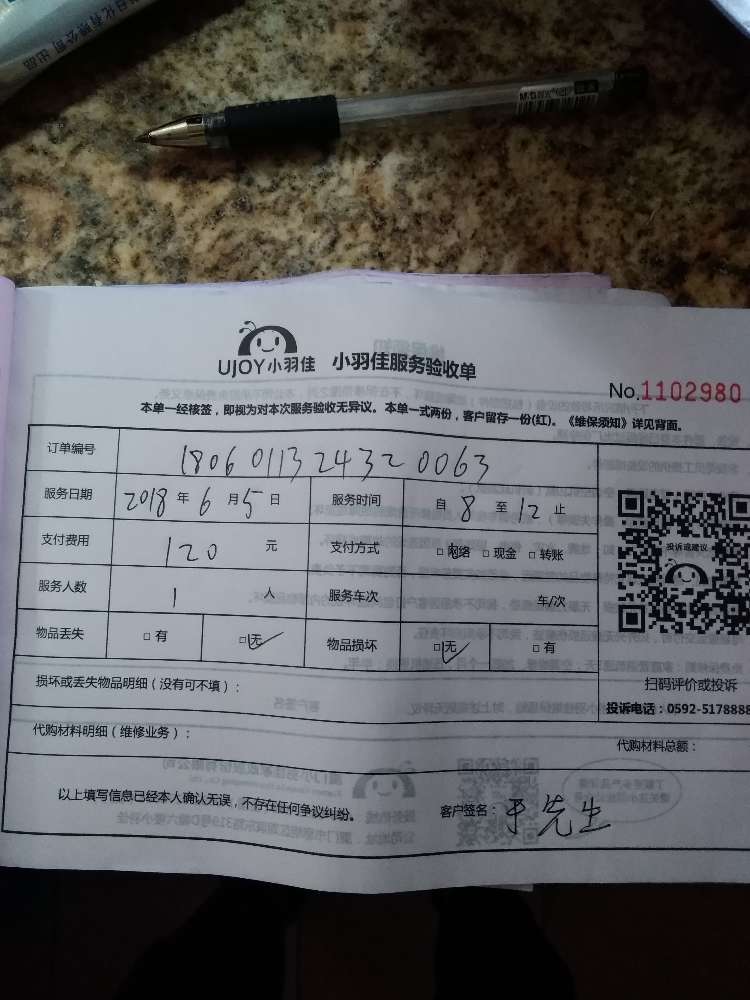 日化有限公司 出品
M&G
UJOY小羽佳 小羽佳服务验收单
No.1102980
本单一经核签，即视为对本次服务验收无异议。本单一式两份，客户留存一份(红)。《维保须知》详见背面。
订单编号 180601132432 0063
服务日期 2018 年 6 月 5 日 服务时间 自 8 至 12 止
支付费用 120 元 支付方式 □ 网络 □ 现金 □ 转账
服务人数 1 人 服务车次 车/次
物品丢失 □ 有 □ 无 物品损坏 □ 无 □ 有
投诉或建议
扫码评价或投诉
损坏或丢失物品明细（没有可不填）：
投诉电话：0592-5178888
代购材料明细（维修业务）： 代购材料总额：
以上填写信息已经本人确认无误，不存在任何争议纠纷。 客户签名：于先生